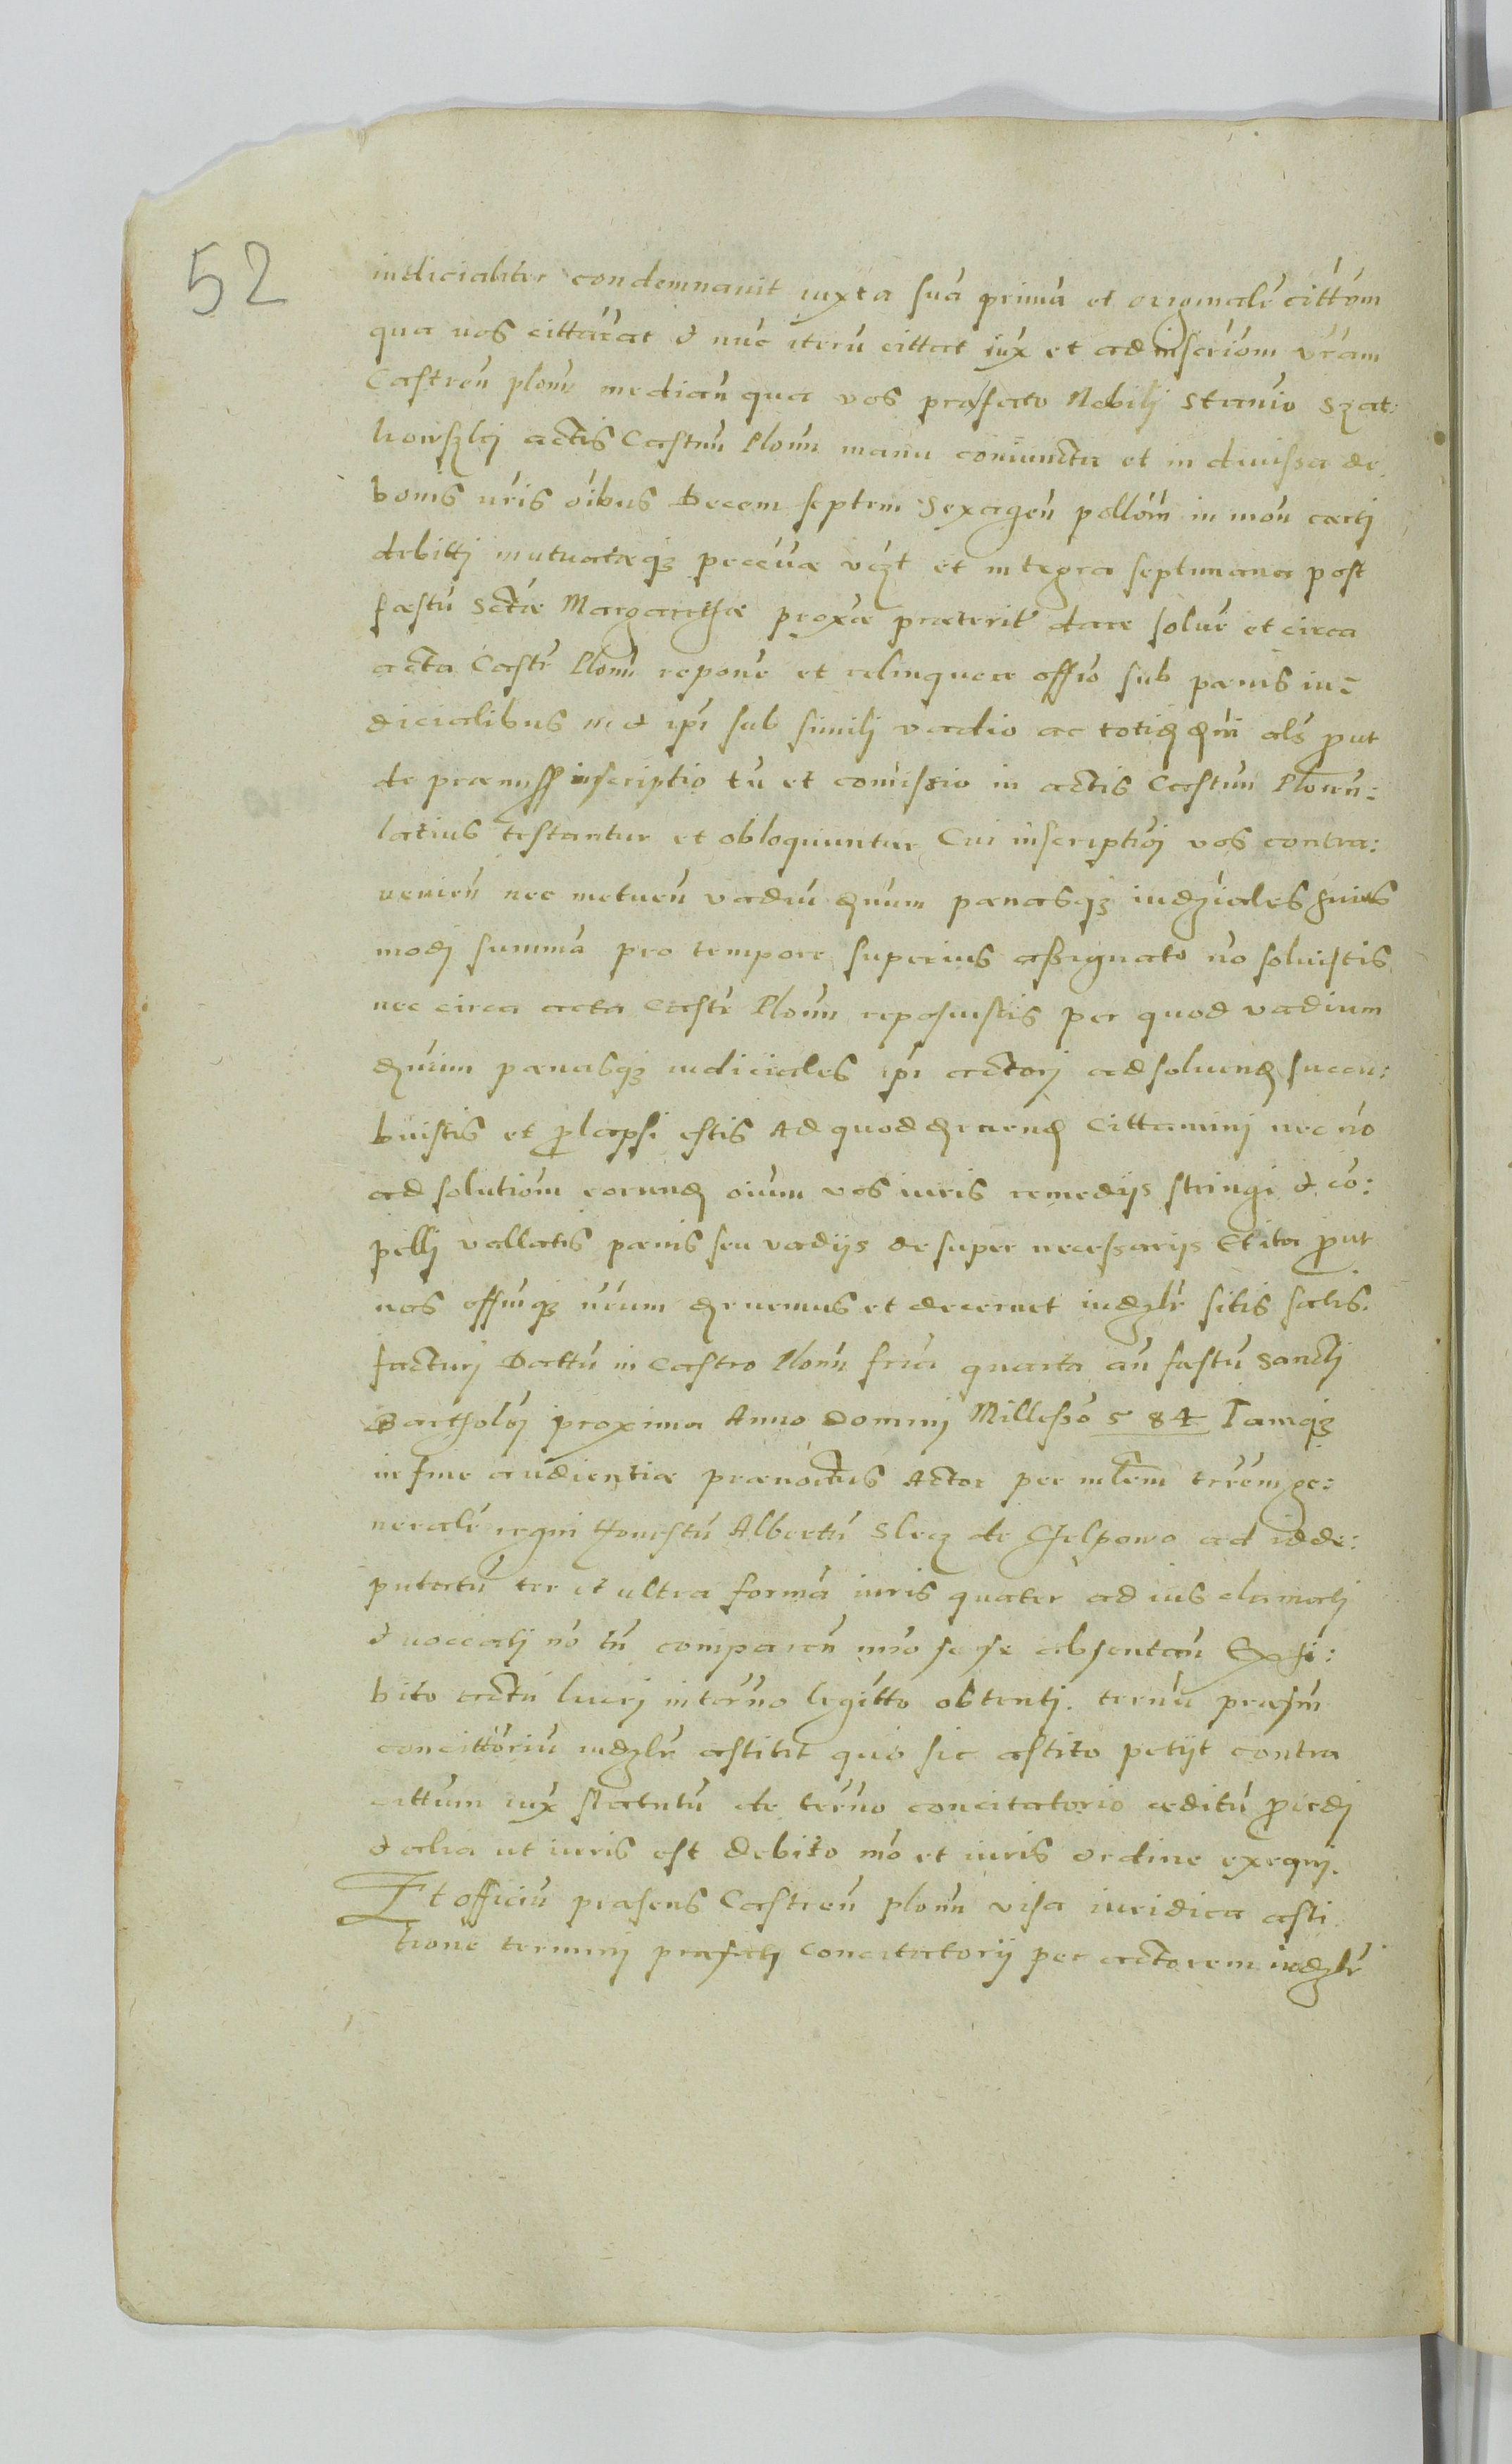 52
iudicialiter condemnavit iuxta suá primá et originalé cittóm
qua uos cittárat & núc iterú cittat iux et ad inscrióm vrám
Castreń plonń medianń qua vos præfato Nobilj Stanio Szat:
kowszkj actis Castreń Plonń manu coniuncta et in divissa de
bonis úris óibus Decem septem sexageń pollóm in móń certj
debittj mutuatæqз pecuæ vcзt et integra septimana post
fæstú sctæ Margarethæ proxæ præterit dare solué et circa
acta Castr Plonń reponé et relinquere offió sub pænis iu-
dicialibus nec & ipi sub similj vadio ac totid dńi als prout
de præmiss inscriptio tú et comissio in actis Castreń Plonen:
latius testantur et obloquuntur Cui inscriptiój vos contra:
venień nec metueń vadiú dnúm pænasqз iudзiales huius
modj summá pro tempore superius assignato nó soluistis
nec circa acta Castr Plonń reposuistis per quod vadium
dnúm pænasqз iudiciales ipi actorj ad soluend succu:
buistis et prolapsi estis Ad quod dcernend Cittaminj nec nó
ad solutióm eorund oium vos iuris remedijs stringi & có:
pellj vallatis pænis seu vadijs de super necessarijs Et ita prout
nos offiúqз nrum dcernemus et decernet iudзlr sitis satis.
facturj Dattú in Castro Plonń feria quarta ań fæstú Sanctj
Bartholój proxima Anno Dominj Millessó 584 Tamqз
in fine audientiæ prænóctus Actor per mlem terrém ge:
neralé regni Honestú Albertú Slecz de Chelpowo ad id de:
putatú ter et ultra formá iuris quater ad ius clamatj
& uoccatj nó tń compareń imó se se absentań Exhi:
bito actu lucrj in termo legitto obtentj. ternú præsń
concittóriú iudзlr astitit quó sic astito petijt contra
cittum iux statutú de terno concitatorio æditú procedj
& alia ut iuris est debito mó et iuris ordine exequj.
Et officiú præsens Castreń plonń visa iuridica asti
tione terminj præfatj Concitatorij per actorem iudзlr